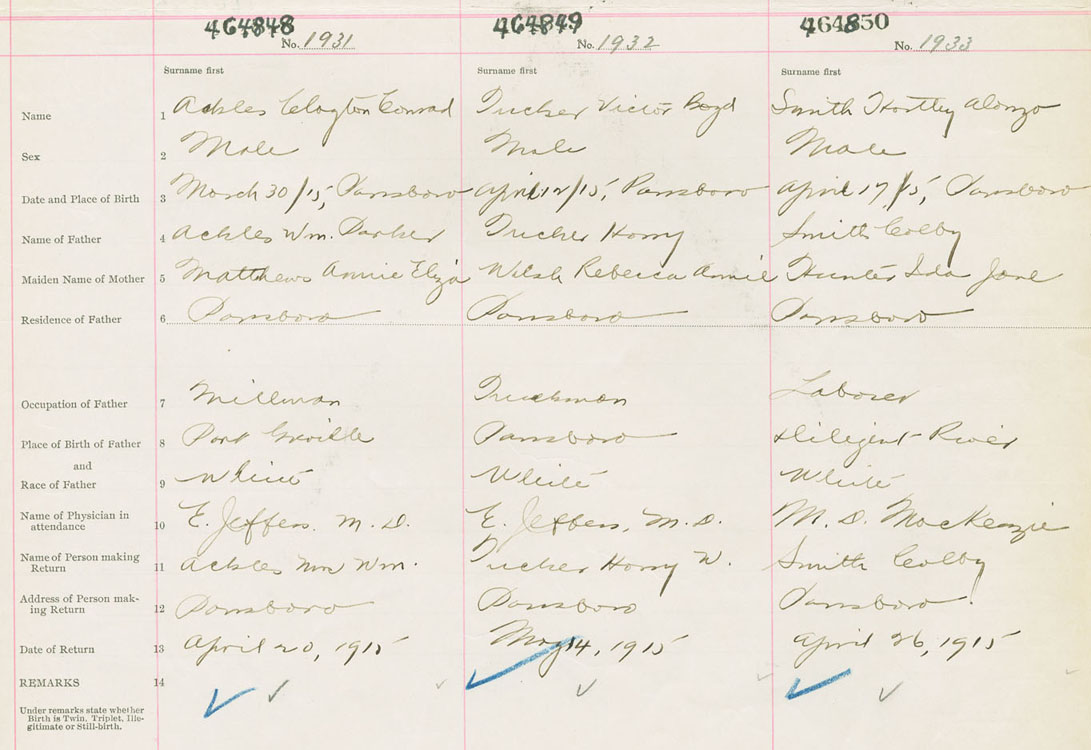 464848 464849 464850
No. 1931 No. 1932 No. 1933
Surname first Surname first Surname first
Name 1 Ackles Clayton Conrad Tucker Victor Boyd Smith Hartley Alonzo
Sex 2 Male Male Male
Date and Place of Birth 3 March 30/15, Parrsboro April 12/15, Parrsboro April 17/15, Parrsboro
Name of Father 4 Ackles Wm. Parker Tucker Harry Smith Colby
Maiden Name of Mother 5 Matthews Annie Eliza Welsh Rebecca Annie Hunter Ida Jane
Residence of Father 6 Parrsboro Parrsboro Parrsboro
Occupation of Father 7 Millman Truckman Laborer
Place of Birth of Father 8 Port Greville Parrsboro Diligent River
and
Race of Father 9 White White White
Name of Physician in
attendance 10 E. Jeffers. M. D. E. Jeffers, M. D. M. D. MacKenzie
Name of Person making
Return 11 Ackles Mrs Wm. Tucker Harry W. Smith Colby
Address of Person mak-
ing Return 12 Parrsboro Parrsboro Parrsboro.
Date of Return 13 April 20, 1915 May 14, 1915 April 26, 1915
REMARKS 14
Under remarks state whether
Birth is Twin, Triplet, Ille-
gitimate or Still-birth.